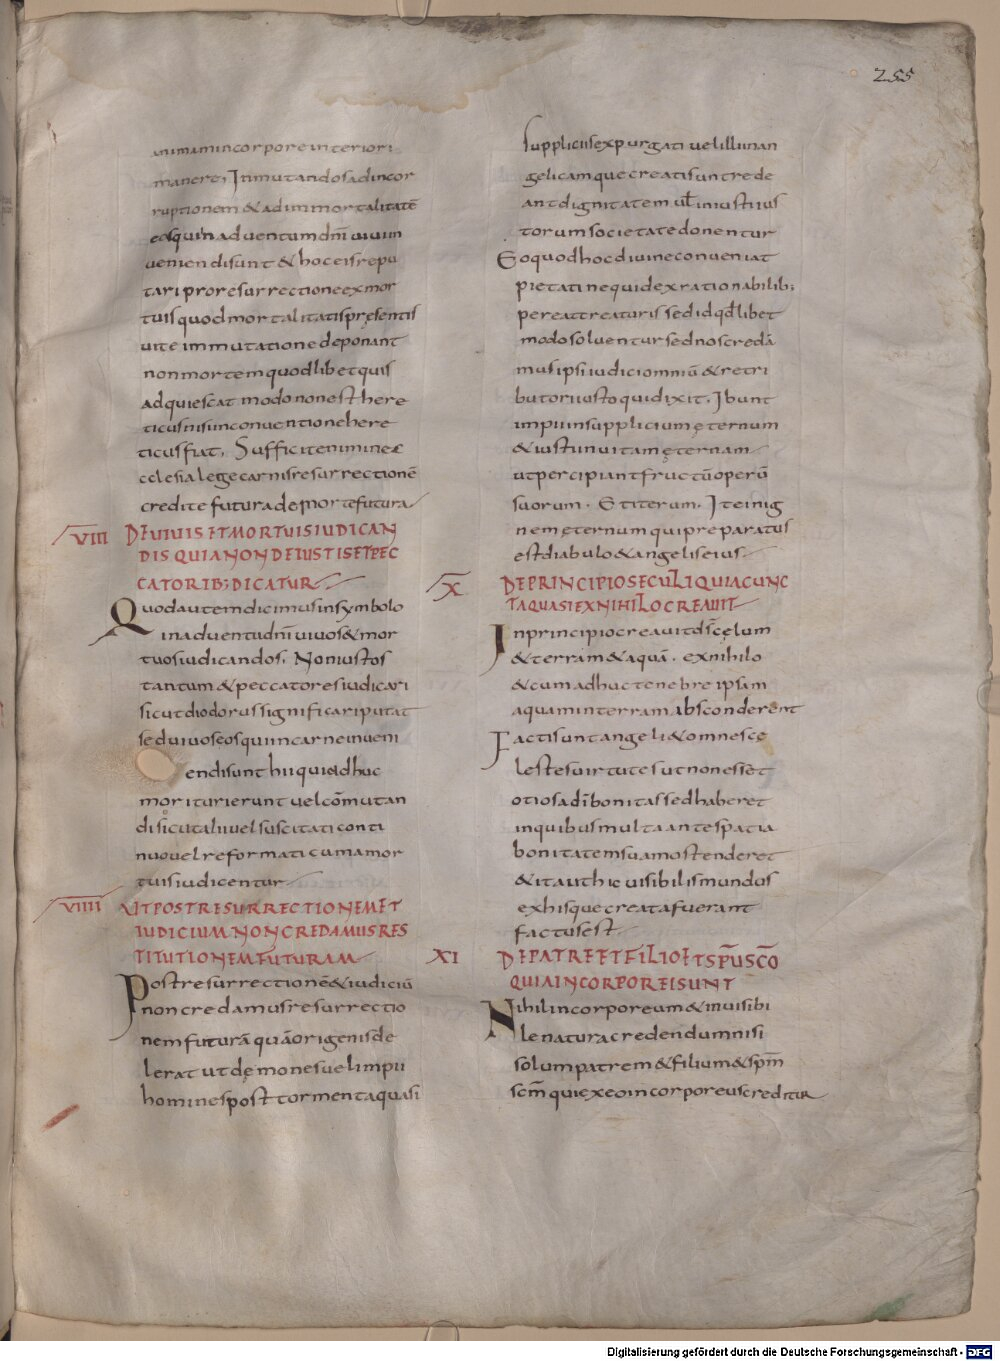 255
animamincorporeinteriori
manere; Itimutandosadincor
ruptionem & adimmortalitatē
eosquiinaduentumdn̄i uiuiin
ueniendisunt & hoceisrepu
tari proresurrectioneexmor
tuisquodmortalitatispręsentis
uite immutationedeponant
nonmortemquodlibetquis
adquiescat modononesthere
ticusnisiinconuentionehere
ticusfiat, Sufficitenimineę
cclesialegecarnisresurrectionē
credite futurademortefutura
VIII DEUIUISETMORTUISIUDICAN
DIS QUIANONDEIUSTISETPEC
CATORIB; DICATUR
Quodautemdicimusinsymbolo
inaduentudn̄i uiuos&mor
tuosiudicandos. Noniustos
tantum & peccatoresiudicari
sicutdiodorussignificariputat
seduiuoseosquiincarneinueni
endisunt hiiquiadhuc
morituriierunt uelcōmutan
disicutaliiuelsuscitaticonti
nuouelreformaticumamor
tuisiudicentur
VIIII UTPOSTRESURRECTIONEMET
IUDICIUMNONCREDAMUSRES
TITUTIONEMFUTURAM
Postresurrectionē&iudiciū
noncredamusresurrectio
nemfuturā quāorigenisde
lerat utdęmonesuelimpii
hominesposttormentaquasi
suppliciisexpurgati uelilliinan
gelicamquecreatisuntrede
antdignitatem ul̄ iniustiius
torumsocietatedonentur
Eoquodhocdiuineconueniat
pietatinequidexrationabilib;
pereatcreaturis sedidqd̄libet
modosoluentursednoscredā
musipsiiudiciomniū & retri
butoriiustoquidixit. Ibunt
impiiinsuppliciumęternum
&iustiinuitamęternam
utpercipiantfructūoperū
suorum. Etiterum. Iteinig
nemęternumquipreparatus
estdiabulo&angeliseius
X DEPRINCIPIOSECULIQUIACUNC
TAQUASIEXNIHILOCREAUIT
Inprincipiocreauitds̄cęlum
&terram&aquā. exnihilo
&cumadhuctenebreipsam
aquaminterramabsconderent
Factisuntangeli&omnescę
lestesuirtutesutnonesset
otiosadībonitassedhaberet
inquibusmultaantespatia
bonitatemsuamostenderet
&itauthicuisibilismundus
exhisquecreatafuerant
factusest
XI DEPATREETFILIOETSP̄USC̄O
QUIAINCORPOREISUNT
Nihilincorporeum&inuisibi
lenaturacredendumnisi
solumpatrem&filium&sp̄m
sc̄m quiexeoincorporeuscreditur
Digitalisierung gefördert durch die Deutsche Forschungsgemeinschaft - DFG